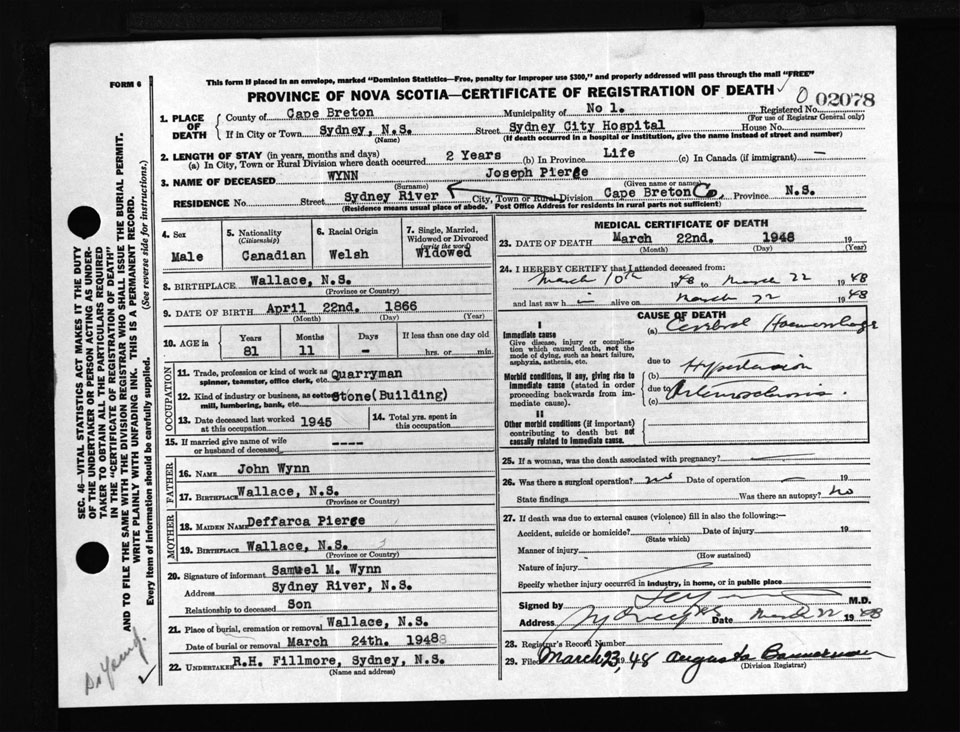 This form if placed in an envelope, marked "Dominion Statistics—Free, penalty for improper use $300," and properly addressed will pass through the mail "FREE"
FORM 6
PROVINCE OF NOVA SCOTIA—CERTIFICATE OF REGISTRATION OF DEATH
0 02078
1. PLACE OF DEATH
County of Cape Breton Municipality of No 1. Registered No.
(For use of Registrar General only)
If in City or Town Sydney, N.S. Street Sydney City Hospital House No.
(Name) (If death occurred in a hospital or institution, give the name instead of street and number)
2. LENGTH OF STAY (in years, months and days)
(a) In City, Town or Rural Division where death occurred 2 Years (b) In Province Life (c) In Canada (if immigrant) —
3. NAME OF DECEASED WYNN Joseph Pierce
(Surname) (Given name or names)
RESIDENCE No. Street Sydney River City, Town or Rural Division Cape Breton Co, Province N.S.
(Residence means usual place of abode. Post Office Address for residents in rural parts not sufficient)
4. Sex
Male
5. Nationality
(Citizenship)
Canadian
6. Racial Origin
Welsh
7. Single, Married, Widowed or Divorced
(write the word)
Widowed
8. BIRTHPLACE Wallace, N.S.
(Province or Country)
9. DATE OF BIRTH April 22nd. 1866
(Month) (Day) (Year)
10. AGE in
Years Months Days If less than one day old
81 11 - hrs. or min.
OCCUPATION
11. Trade, profession or kind of work as spinner, teamster, office clerk, etc. Quarryman
12. Kind of industry or business, as cotton mill, lumbering, bank, etc. Stone (Building)
13. Date deceased last worked at this occupation 1945
14. Total yrs. spent in this occupation
15. If married give name of wife or husband of deceased ----
FATHER
16. NAME John Wynn
17. BIRTHPLACE Wallace, N.S.
(Province or Country)
MOTHER
18. MAIDEN NAME Deffarca Pierce
19. BIRTHPLACE Wallace, N.S.
(Province or Country)
20. Signature of informant Samuel M. Wynn
Address Sydney River, N.S.
Relationship to deceased Son
21. Place of burial, cremation or removal Wallace, N.S.
Date of burial or removal March 24th. 1948
22. UNDERTAKER R.H. Fillmore, Sydney, N.S.
(Name and address)
MEDICAL CERTIFICATE OF DEATH
23. DATE OF DEATH March 22nd. 1948 19
(Month) (Day) (Year)
24. I HEREBY CERTIFY that I attended deceased from:
March 10th 1948 to March 22 1948
and last saw h i alive on March 22 1948
CAUSE OF DEATH
I
Immediate cause
Give disease, injury or complication which caused death, not the mode of dying, such as heart failure, asphyxia, asthenia, etc.
(a) Cerebral Haemorrhage
due to
Morbid conditions, if any, giving rise to immediate cause (stated in order proceeding backwards from immediate cause).
(b) Hypertension
due to
(c) Arteriosclerosis.
II
Other morbid conditions (if important) contributing to death but not causally related to immediate cause.
25. If a woman, was the death associated with pregnancy?
26. Was there a surgical operation? no Date of operation — 19
State findings Was there an autopsy? No
27. If death was due to external causes (violence) fill in also the following:—
Accident, suicide or homicide? Date of injury 19
(State which)
Manner of injury
(How sustained)
Nature of injury
Specify whether injury occurred in industry, in home, or in public place
Signed by M.D.
Address Sydney NS Date March 22 1948
28. Registrar's Record Number
29. Filed March 23, 1948 Augusta Bannerman
(Division Registrar)
SEC. 46—VITAL STATISTICS ACT MAKES IT THE DUTY OF THE UNDERTAKER OR PERSON ACTING AS UNDERTAKER TO OBTAIN ALL THE PARTICULARS REQUIRED IN THE "CERTIFICATE OF REGISTRATION OF DEATH" AND TO FILE THE SAME WITH THE DIVISION REGISTRAR WHO SHALL ISSUE THE BURIAL PERMIT.
WRITE PLAINLY WITH UNFADING INK. THIS IS A PERMANENT RECORD.
Every item of information should be carefully supplied. (See reverse side for instructions.)
Dr Young.